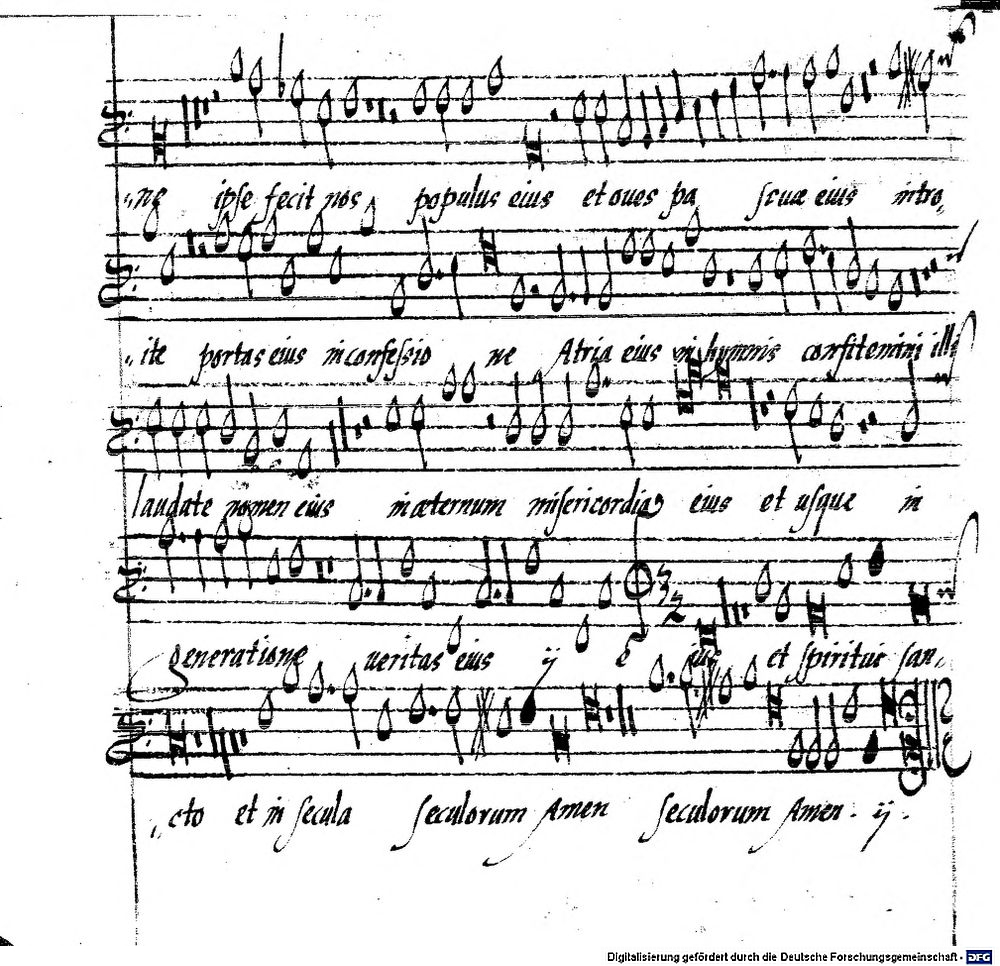 ne ipse fecit nos populus eius et oues pa scuæ eius intro,
ite portas eius in confessio ne Atria eius in hymnis confitemini illi
laudate nomen eius in æternum misericordia eius et usque in
generatione ueritas eius ij e ius et spiritui san,
cto et in secula seculorum Amen seculorum Amen. ij.
Digitalisierung gefördert durch die Deutsche Forschungsgemeinschaft - DFG